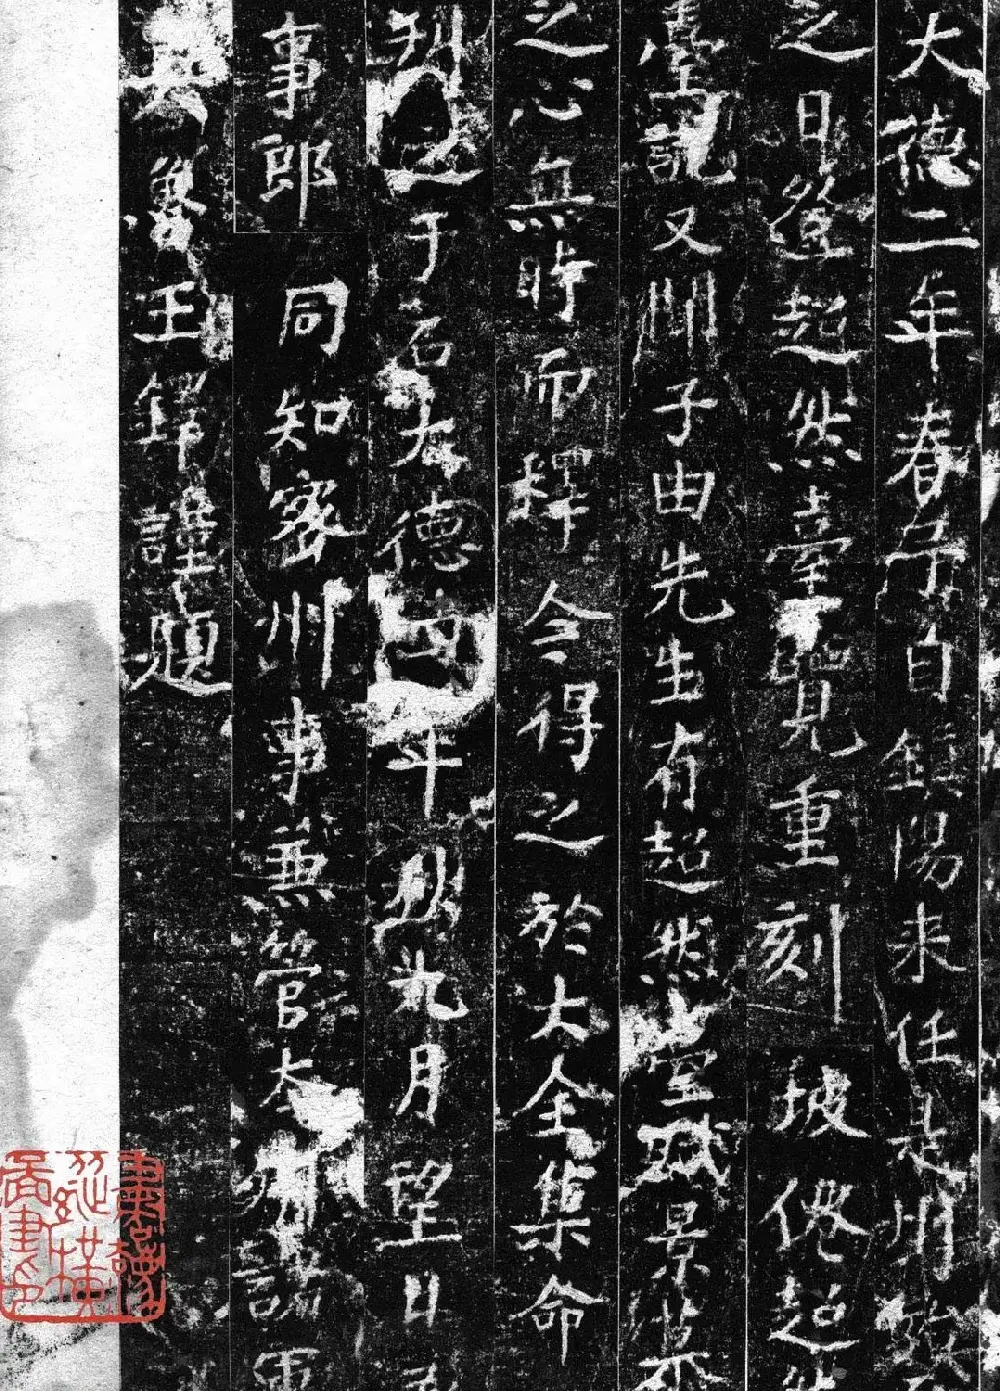 大德二年春予自鎮陽来任是州
之日登超然臺覽見重刻 坡僊超
臺記又刪子由先生有超然臺賦景
之心無時而釋 今得之於大全集命
于石大德年秋九月望日
事郎 同知密州事兼管本 諸軍
奥魯王鐸謹題